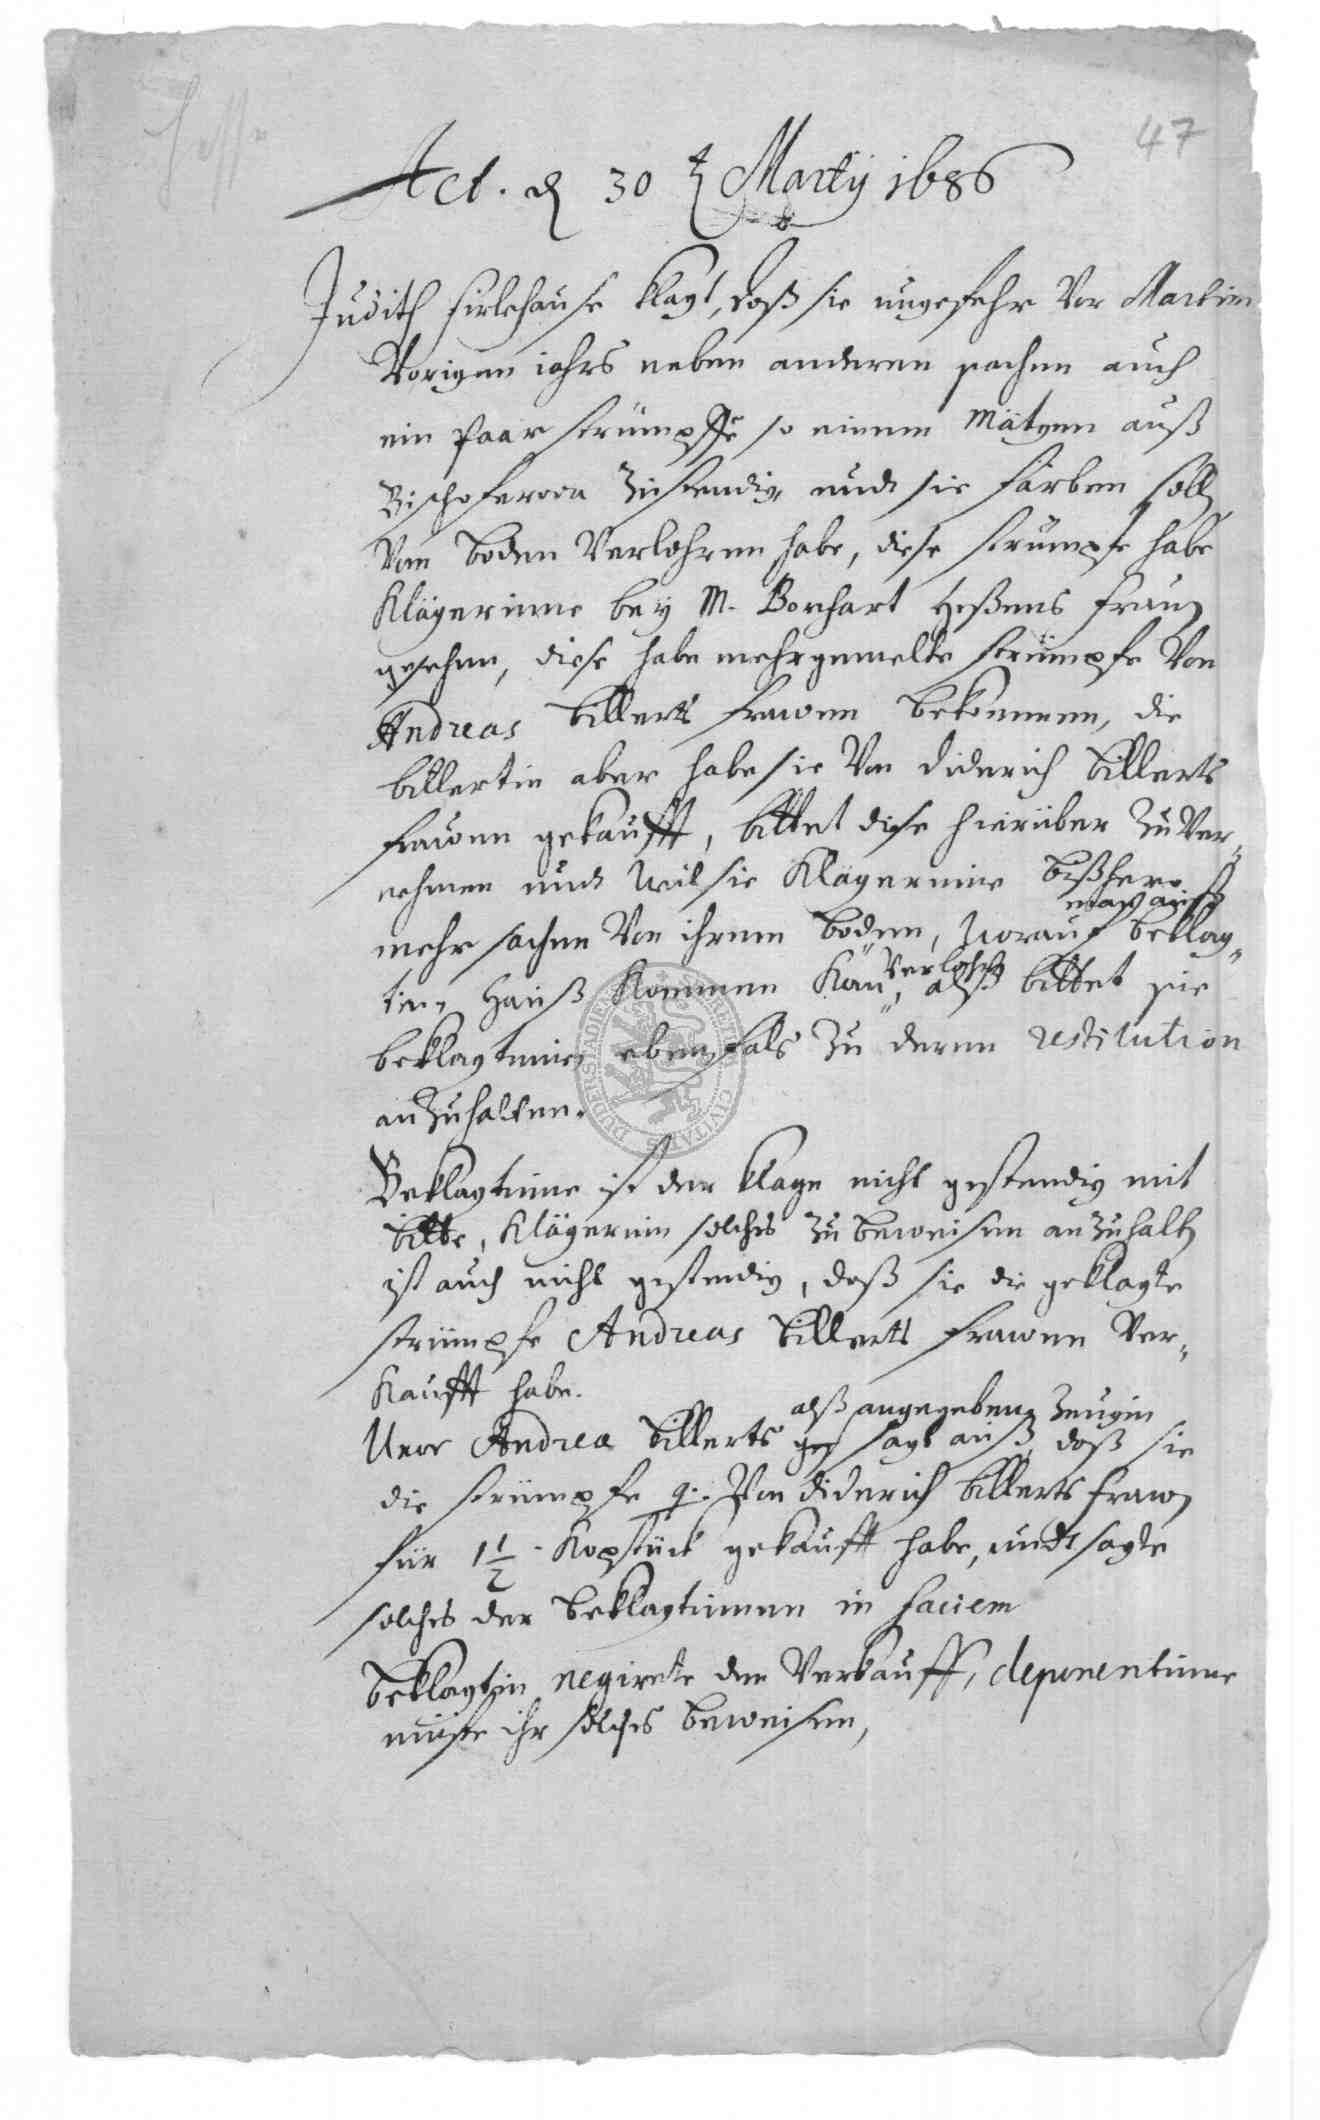 47
Act. d 30 t Martij 1686
Judith sirlehause klagt, daß sie ungefehr vor Martini
Vorigen iahrs neben anderen sachen auch
ein Paar strümpffe so einem Mätgen auß
Bischoferoda zustendig, undt sie färben soll
Von boden Verlohren habe, diese strümpfe habe
Klägerinne bey M. Borchart Heßens fraw
gesehen, diese habe mehrgemelte strümpfe Von
Andreas Billerts frawen bekommen, die
billertin aber habe sie Von diderich billerts
frawen gekaufft, bittet diese hierüber zu Ver„
nehmen undt weil sie Klägerinne bißhero
mehr sachen Von ihrem boden, worauf man auß beklag„
tin Hauß kommen kan, verlohren alß bittet sie
beklagtinne ebenfals zu deren restitution
anzuhalten.
Beklagtinne ist der klage nicht gestendig mit
bitte, Klägerin solches zu beweisen anzuhalten
ist auch nicht gestendig, daß sie die geklagte
strümpfe Andreas Billerts frawen Ver„
kaufft habe.
alß angegebene Zeugin
Uxor Andrea Billerts sagt auß, daß sie
die strümpfe q. Von diderich billerts fraw
für 1 1/2 Kopstück gekaufft habe, undt sagte
solches der beklagtinnen in faciem
beklagtin negirete den Verkauff, deponentinne
müste ihr solches beweisen,